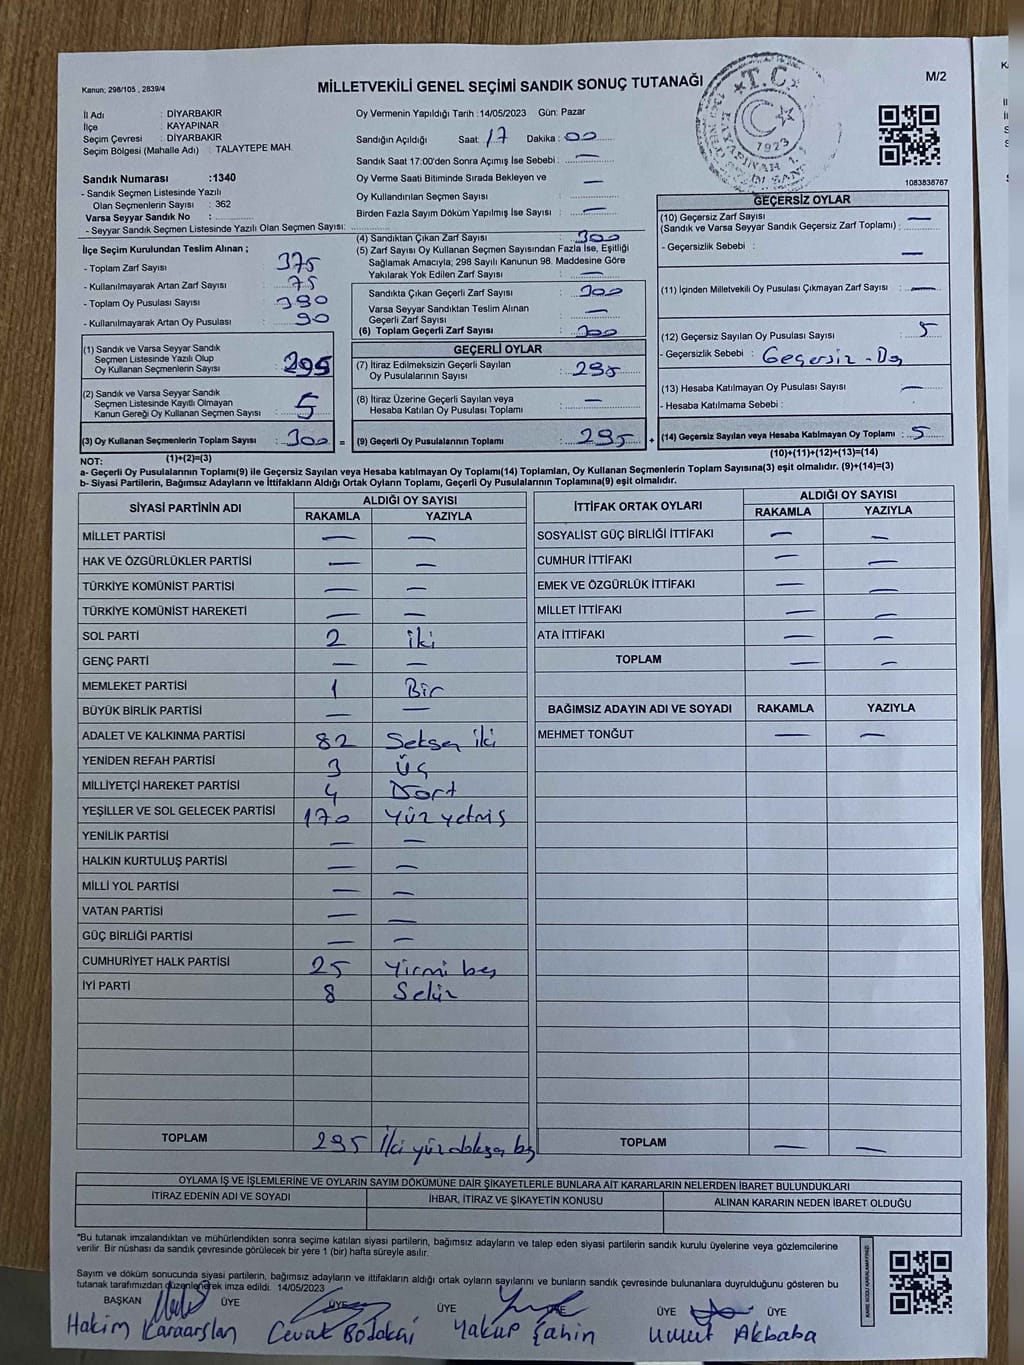 Kanun: 298/105 , 2839/4
MİLLETVEKİLİ GENEL SEÇİMİ SANDIK SONUÇ TUTANAĞI
M/2
İl Adı : DİYARBAKIR
İlçe : KAYAPINAR
Seçim Çevresi : DİYARBAKIR
Seçim Bölgesi (Mahalle Adı) : TALAYTEPE MAH.
Sandık Numarası :1340
- Sandık Seçmen Listesinde Yazılı
Olan Seçmenlerin Sayısı : 362
Varsa Seyyar Sandık No :
- Seyyar Sandık Seçmen Listesinde Yazılı Olan Seçmen Sayısı:
İlçe Seçim Kurulundan Teslim Alınan ;
- Toplam Zarf Sayısı : 375
- Kullanılmayarak Artan Zarf Sayısı : 75
- Toplam Oy Pusulası Sayısı : 390
- Kullanılmayarak Artan Oy Pusulası : 90
(1) Sandık ve Varsa Seyyar Sandık
Seçmen Listesinde Yazılı Olup
Oy Kullanan Seçmenlerin Sayısı : 295
(2) Sandık ve Varsa Seyyar Sandık
Seçmen Listesinde Kayıtlı Olmayan
Kanun Gereği Oy Kullanan Seçmen Sayısı : 5
(3) Oy Kullanan Seçmenlerin Toplam Sayısı : 300 =
(1)+(2)=(3)
Oy Vermenin Yapıldığı Tarih :14/05/2023 Gün: Pazar
Sandığın Açıldığı Saat: 17 Dakika : 00
Sandık Saat 17:00'den Sonra Açımış İse Sebebi : —
Oy Verme Saati Bitiminde Sırada Bekleyen ve
Oy Kullandırılan Seçmen Sayısı —
Birden Fazla Sayım Döküm Yapılmış İse Sayısı : —
(4) Sandıktan Çıkan Zarf Sayısı : 300
(5) Zarf Sayısı Oy Kullanan Seçmen Sayısından Fazla İse, Eşitliği
Sağlamak Amacıyla; 298 Sayılı Kanunun 98. Maddesine Göre
Yakılarak Yok Edilen Zarf Sayısı : —
Sandıkta Çıkan Geçerli Zarf Sayısı : 300
Varsa Seyyar Sandıktan Teslim Alınan
Geçerli Zarf Sayısı : —
(6) Toplam Geçerli Zarf Sayısı : 300
GEÇERLİ OYLAR
(7) İtiraz Edilmeksizin Geçerli Sayılan
Oy Pusulalarının Sayısı : 295
(8) İtiraz Üzerine Geçerli Sayılan veya
Hesaba Katılan Oy Pusulası Toplamı : —
(9) Geçerli Oy Pusulalarının Toplamı : 295 +
T.C.
1923
1083838767
GEÇERSİZ OYLAR
(10) Geçersiz Zarf Sayısı
(Sandık ve Varsa Seyyar Sandık Geçersiz Zarf Toplamı) : —
- Geçersizlik Sebebi : —
(11) İçinden Milletvekili Oy Pusulası Çıkmayan Zarf Sayısı : —
(12) Geçersiz Sayılan Oy Pusulası Sayısı : 5
- Geçersizlik Sebebi : Geçersiz - Oy
(13) Hesaba Katılmayan Oy Pusulası Sayısı : —
- Hesaba Katılmama Sebebi :
(14) Geçersiz Sayılan veya Hesaba Katılmayan Oy Toplamı : 5
(10)+(11)+(12)+(13)=(14)
NOT:
a- Geçerli Oy Pusulalarının Toplamı(9) ile Geçersiz Sayılan veya Hesaba katılmayan Oy Toplamı(14) Toplamları, Oy Kullanan Seçmenlerin Toplam Sayısına(3) eşit olmalıdır. (9)+(14)=(3)
b- Siyasi Partilerin, Bağımsız Adayların ve İttifakların Aldığı Ortak Oyların Toplamı, Geçerli Oy Pusulalarının Toplamına(9) eşit olmalıdır.
SİYASİ PARTİNİN ADI ALDIĞI OY SAYISI
RAKAMLA YAZIYLA
MİLLET PARTİSİ — —
HAK VE ÖZGÜRLÜKLER PARTİSİ — —
TÜRKİYE KOMÜNİST PARTİSİ — —
TÜRKİYE KOMÜNİST HAREKETİ — —
SOL PARTİ 2 iki
GENÇ PARTİ — —
MEMLEKET PARTİSİ 1 Bir
BÜYÜK BİRLİK PARTİSİ — —
ADALET VE KALKINMA PARTİSİ 82 Seksen iki
YENİDEN REFAH PARTİSİ 3 Üç
MİLLİYETÇİ HAREKET PARTİSİ 4 Dört
YEŞİLLER VE SOL GELECEK PARTİSİ 170 Yüz yetmiş
YENİLİK PARTİSİ — —
HALKIN KURTULUŞ PARTİSİ — —
MİLLİ YOL PARTİSİ — —
VATAN PARTİSİ — —
GÜÇ BİRLİĞİ PARTİSİ — —
CUMHURİYET HALK PARTİSİ 25 Yirmi beş
İYİ PARTİ 8 Sekiz
TOPLAM 295 İki yüz doksan beş
İTTİFAK ORTAK OYLARI ALDIĞI OY SAYISI
RAKAMLA YAZIYLA
SOSYALİST GÜÇ BİRLİĞİ İTTİFAKI — —
CUMHUR İTTİFAKI — —
EMEK VE ÖZGÜRLÜK İTTİFAKI — —
MİLLET İTTİFAKI — —
ATA İTTİFAKI — —
TOPLAM — —
BAĞIMSIZ ADAYIN ADI VE SOYADI RAKAMLA YAZIYLA
MEHMET TONĞUT — —
TOPLAM — —
OYLAMA İŞ VE İŞLEMLERİNE VE OYLARIN SAYIM DÖKÜMÜNE DAİR ŞİKAYETLERLE BUNLARA AİT KARARLARIN NELERDEN İBARET BULUNDUKLARI
İTİRAZ EDENİN ADI VE SOYADI İHBAR, İTİRAZ VE ŞİKAYETİN KONUSU ALINAN KARARIN NEDEN İBARET OLDUĞU
*Bu tutanak imzalandıktan ve mühürlendikten sonra seçime katılan siyasi partilerin, bağımsız adayların ve talep eden siyasi partilerin sandık kurulu üyelerine veya gözlemcilerine
verilir. Bir nüshası da sandık çevresinde görülecek bir yere 1 (bir) hafta süreyle asılır.
Sayım ve döküm sonucunda siyasi partilerin, bağımsız adayların ve ittifakların aldığı ortak oyların sayılarını ve bunların sandık çevresinde bulunanlara duyrulduğunu gösteren bu
tutanak tarafımızdan düzenlenerek imza edildi. 14/05/2023
BAŞKAN ÜYE ÜYE ÜYE ÜYE ÜYE ÜYE
Hakim Karaarslan Cevat Yakup Şahin Umut Akbaba